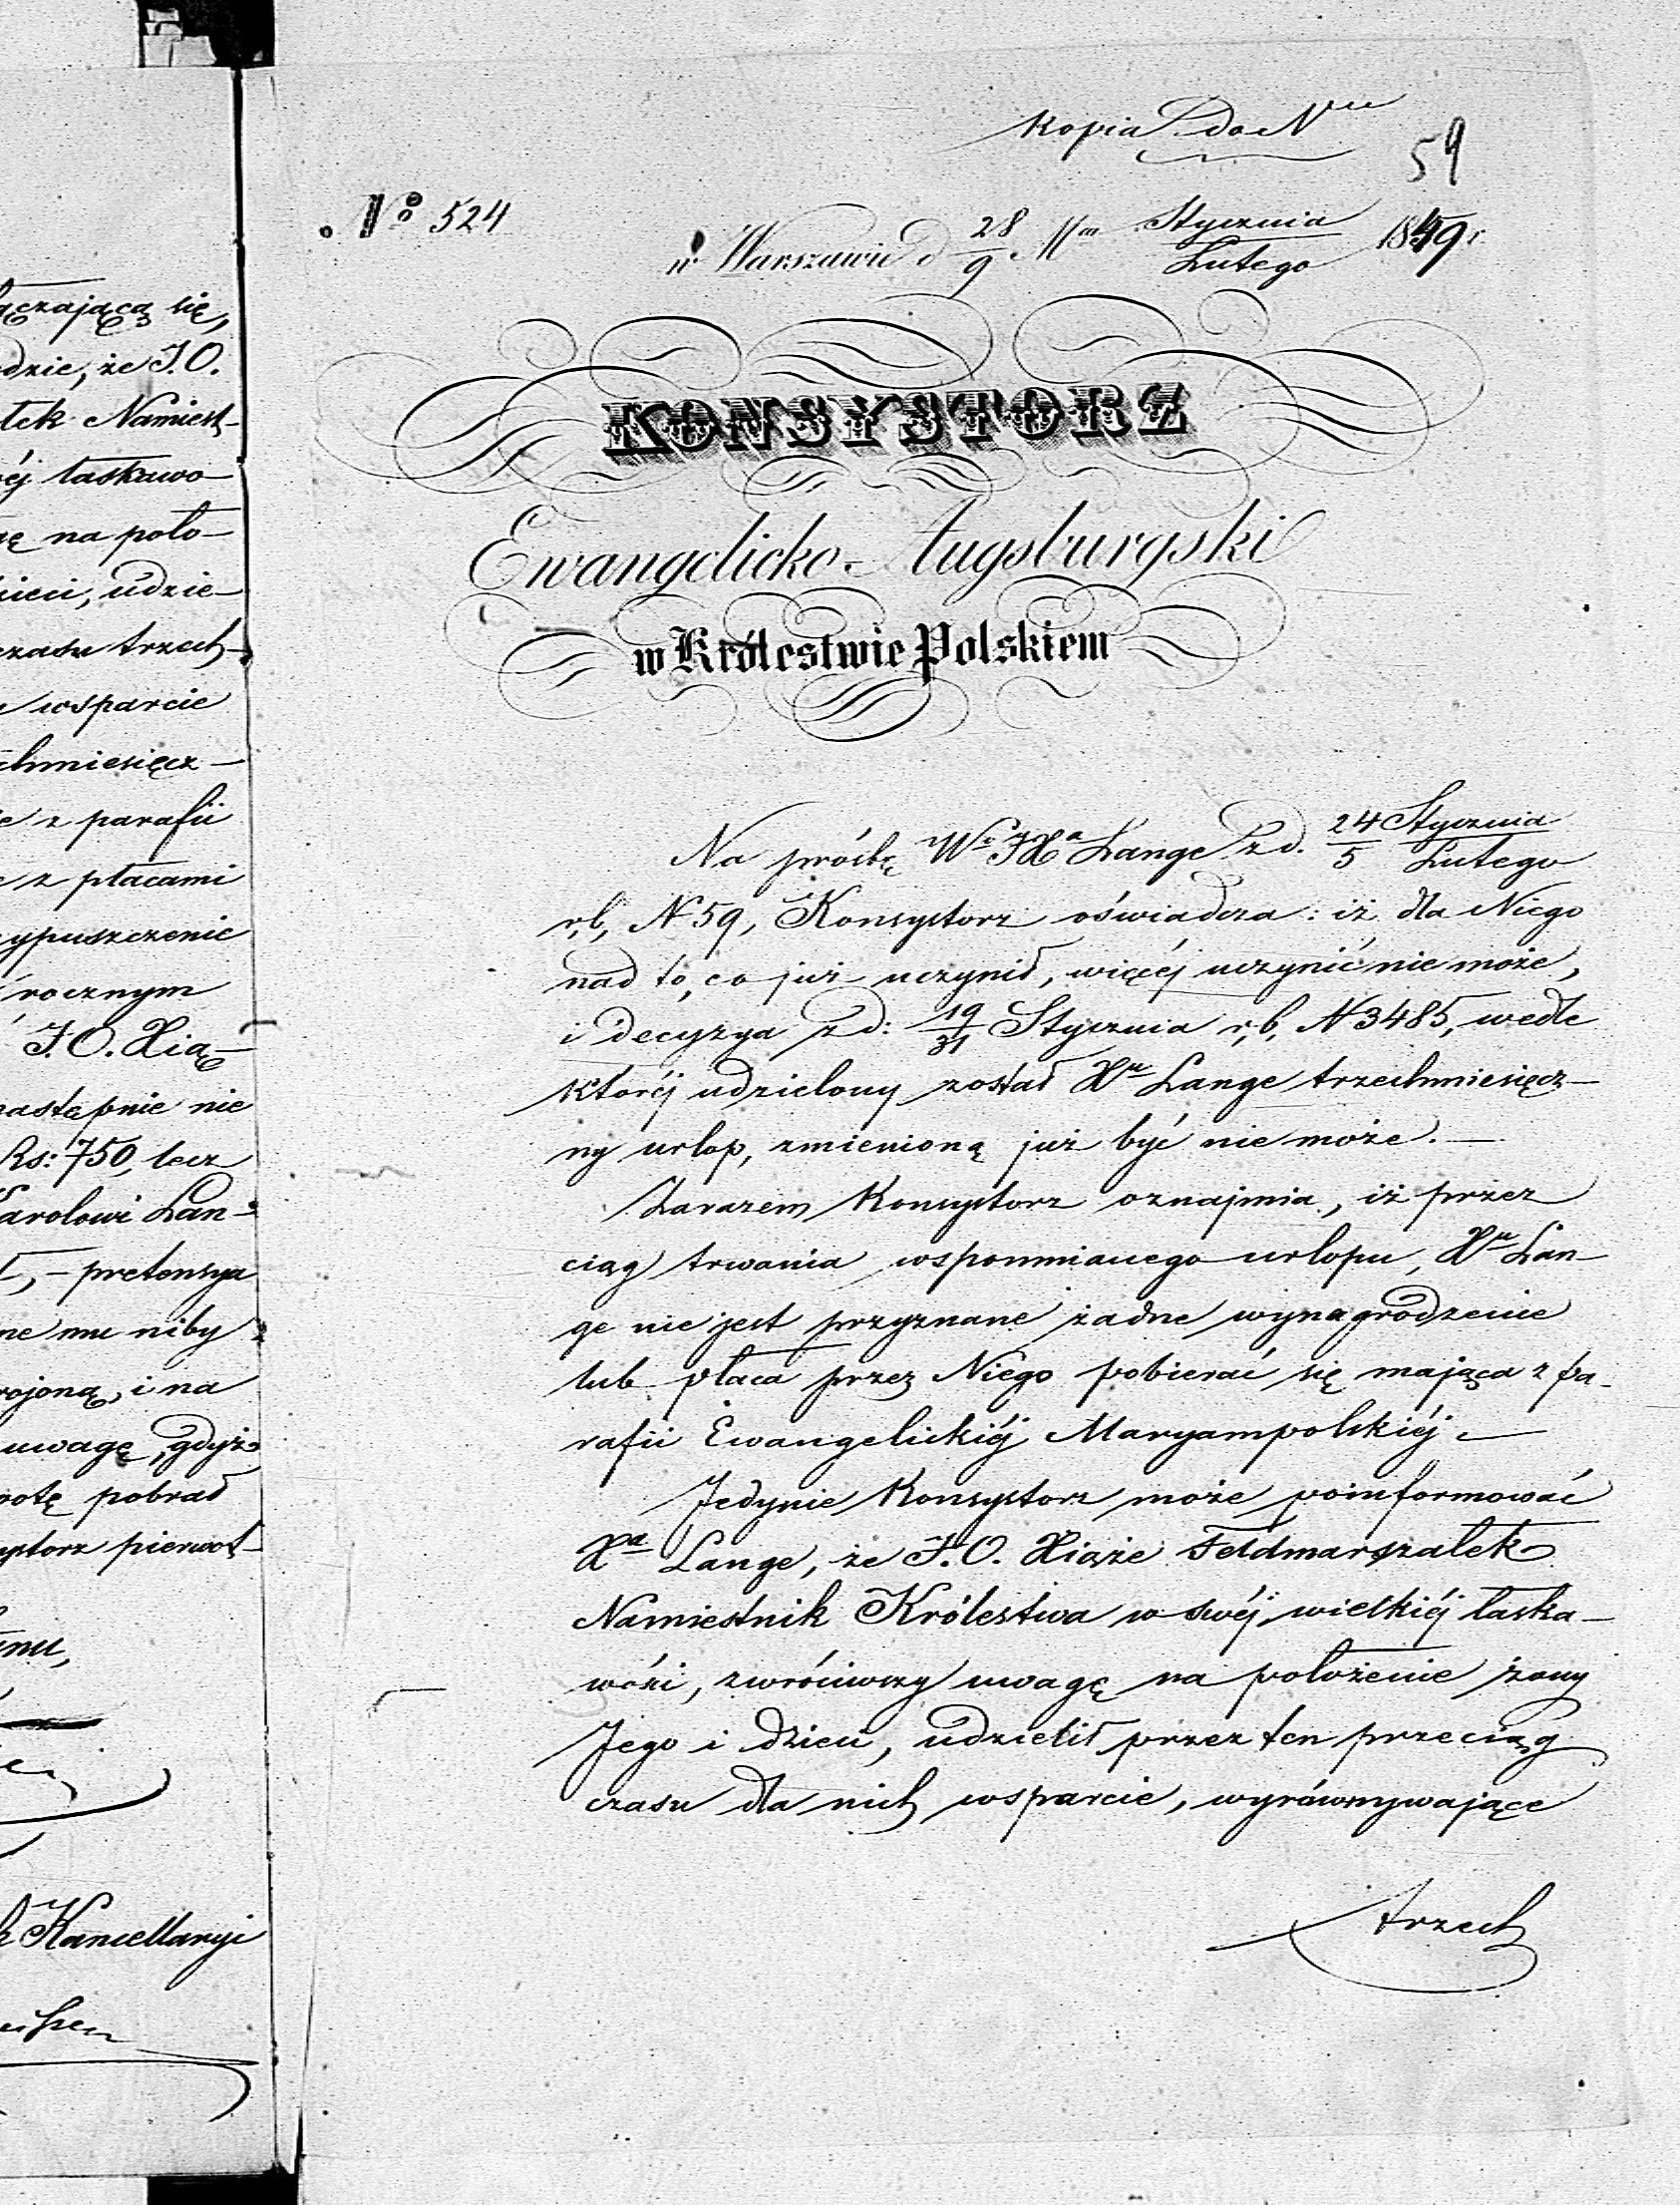 ączającą się,
odzie, że J.O.
łek Namiest-
éj łaskawo-
ę na poło-
ieci, udzie-
czasu trzech-
wsparcie
chmiesięcz-
e z parafii
e z płacami
ypuszczenie
rocznym
J.O. Xią-
następnie nie
Rs: 750, lecz
Karolowi Lan-
pretensya
ne mu niby
rojoną, i na
uwagę, gdyż
otę pobrał
ystorz pierwot-
mu,
Kancellaryi
Kopia do N
59
№ 524
w Warszawie d 28/9 M Stycznia/Lutego 1849 r
KONSYSTORZ
Ewangelicko-Augsburgski
w Królestwie Polskiem
Na prośbę Wº JXa Lange z d. 24 Stycznia/5 Lutego
r,b, N 59, Konsystorz oświadcza: iż dla Niego
nad to, co już uczynił, więcéj uczynić nie może,
i decyzya z d: 19/31 Stycznia r,b, N 3485, wedle
któréj udzielony został Xu Lange trzechmiesięcz-
ny urlop, zmienioną już być nie może. —
Zarazem Konsystorz oznajmia, iż przez
ciąg trwania wspomnianego urlopu, Xu Lan-
ge nie jest przyznane żadne wynagrodzenie
lub płaca przez Niego pobierać się mająca z pa-
rafii Ewangelickiéj Maryampolskiéj. —
Jedynie Konsystorz może poinformować
Xa Lange, że J.O. Xiąże Feldmarszałek
Namiestnik Królestwa w swéj wielkiéj łaska-
wości, zwróciwszy uwagę na położenie żony
Jego i dzieci, udzielił przez ten przeciąg
czasu dla nich wsparcie, wyrównywające
trzech